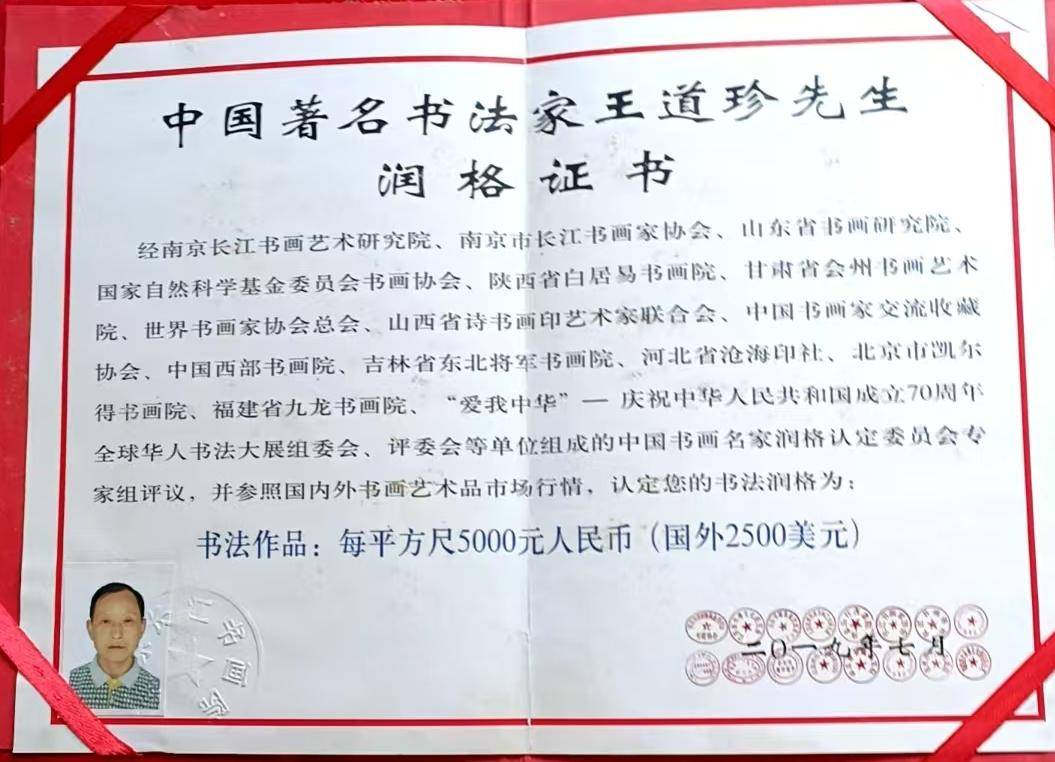 中国著名书法家王道珍先生
润格证书
经南京长江书画艺术研究院、南京市长江书画家协会、山东省书画研究院、
国家自然科学基金委员会书画协会、陕西省白居易书画院、甘肃省会州书画艺术
院、世界书画家协会总会、山西省诗书画印艺术家联合会、中国书画家交流收藏
协会、中国西部书画院、吉林省东北将军书画院、河北省沧海印社、北京市凯尔
得书画院、福建省九龙书画院、“爱我中华”— 庆祝中华人民共和国成立70周年
全球华人书法大展组委会、评委会等单位组成的中国书画名家润格认定委员会专
家组评议，并参照国内外书画艺术品市场行情，认定您的书法润格为：
书法作品：每平方尺5000元人民币（国外2500美元）
二〇一九年七月